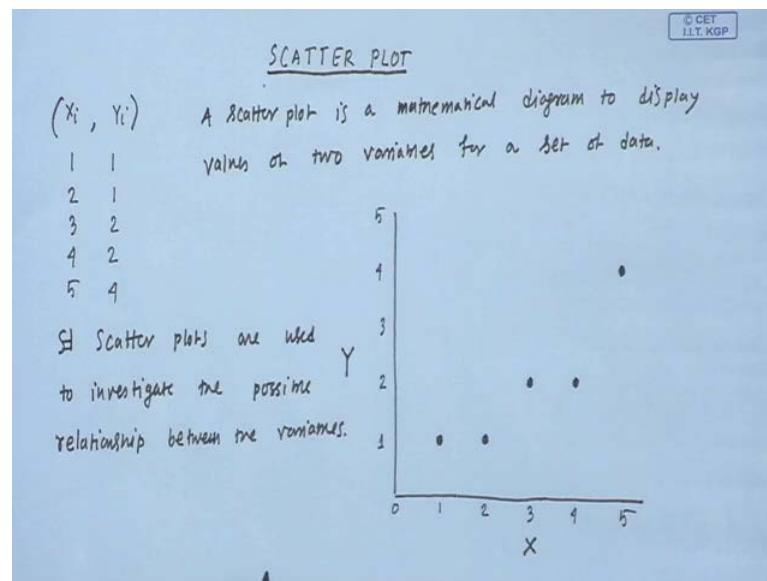 © CET
I.I.T. KGP
SCATTER PLOT
(Xi , Yi)
1 1
2 1
3 2
4 2
5 4
A scatter plot is a mathematical diagram to display
values of two variables for a set of data.
Scatter plots are used
to investigate the possible
relationship between the variables.
5
4
3
Y
2
1
0 1 2 3 4 5
X